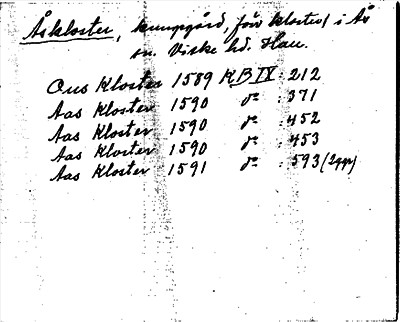 Åskloster, kungsgård, förr kloster, i Ås
sn. Viske hd. Hall.
Aus Kloster 1589 KB IV : 212
Aas Kloster 1590 do : 371
Aas Kloster 1590 do : 452
Aas Kloster 1590 do : 453
Aas Kloster 1591 do : 593 (2 ggr)